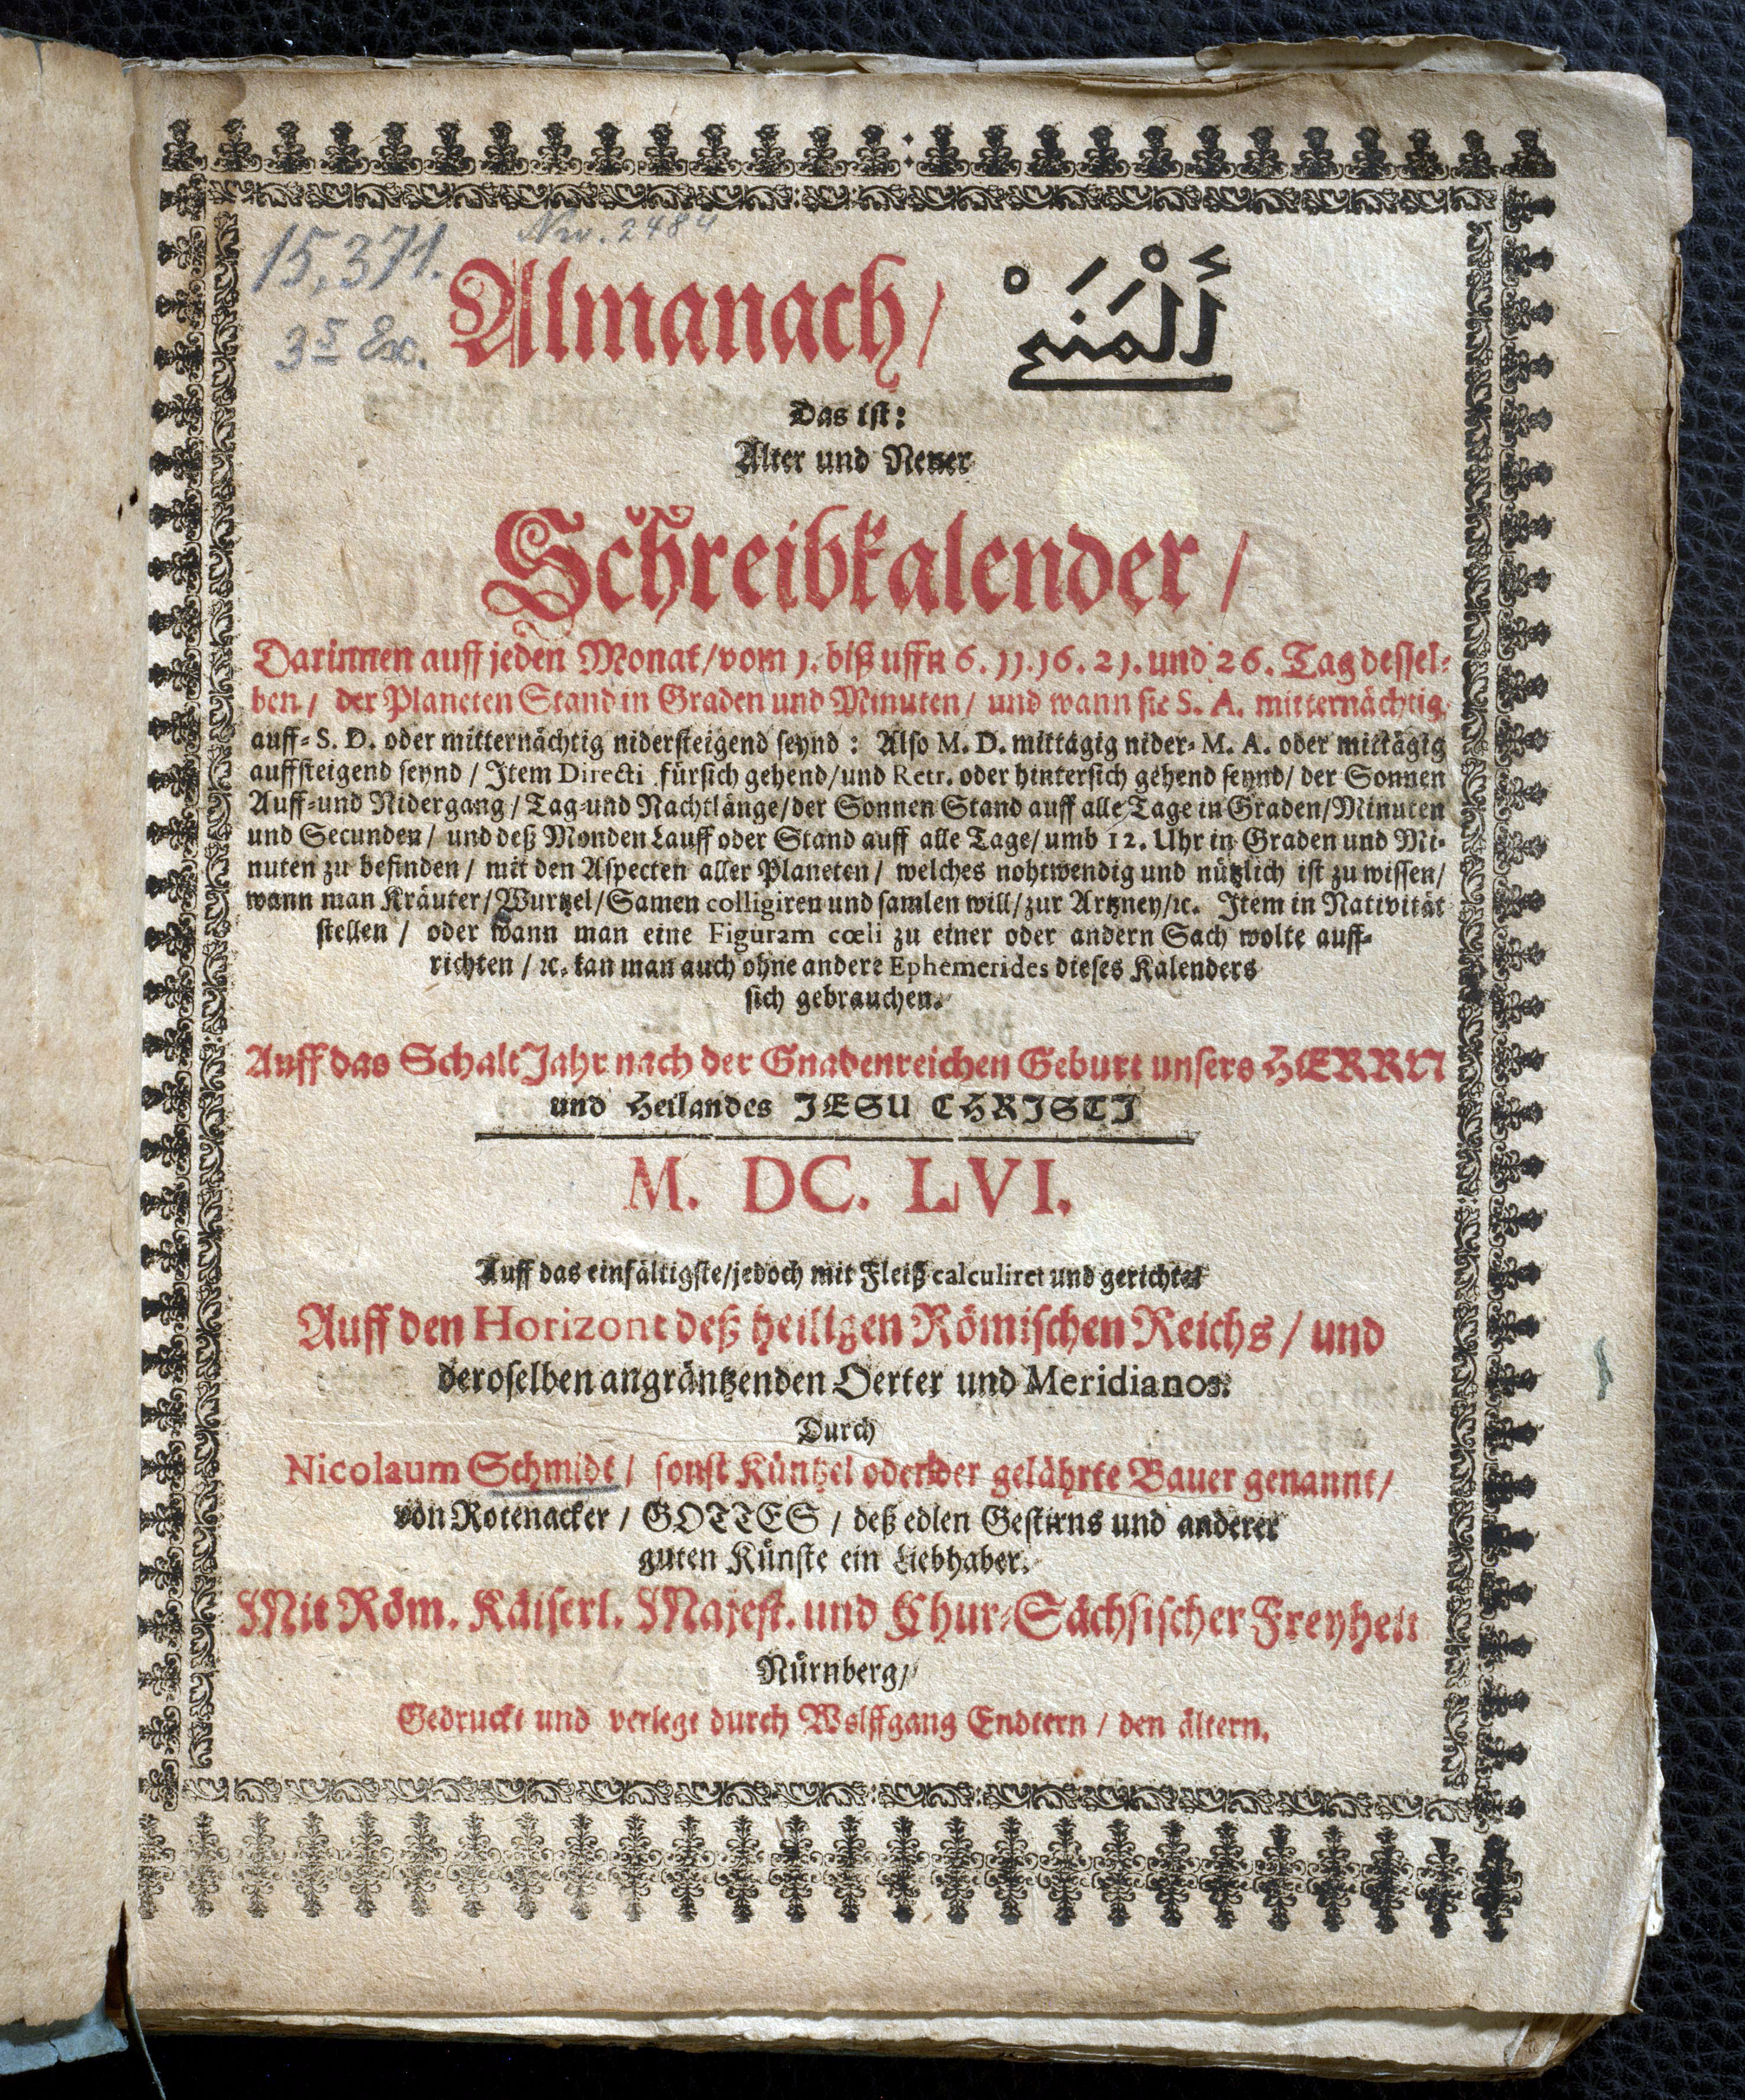 Nro. 2484
15,371.
3s Ex.
Almanach/ أَلْمَنَحْ
Das ist:
Alter und Newer
Schreibkalender/
Darinnen auff jeden Monat/vom 1. biß uffn 6. 11. 16. 21. und 26. Tag dessel-
ben/ der Planeten Stand in Graden und Minuten/ und wann sie S. A. mitternächtig
auff- S. D. oder mitternächtig nidersteigend seynd: Also M. D. mittägig nider- M. A. oder mittägig
auffsteigend seynd/ Item Directi fürsich gehend/und Retr. oder hintersich gehend seynd/ der Sonnen
Auff-und Nidergang/ Tag-und Nachtlänge/der Sonnen Stand auff alle Tage in Graden/Minuten
und Secunden/ und deß Monden Lauff oder Stand auff alle Tage/ umb 12. Uhr in Graden und Mi-
nuten zu befinden/ mit den Aspecten aller Planeten/ welches nohtwendig und nützlich ist zu wissen/
wann man Kräuter/Wurtzel/Samen colligiren und samlen will/zur Artzney/ꝛc. Item in Nativität
stellen/ oder wann man eine Figuram cœli zu einer oder andern Sach wolte auff-
richten/ ꝛc. kan man auch ohne andere Ephemerides dieses Kalenders
sich gebrauchen.
Auff das Schalt Jahr nach der Gnadenreichen Geburt unsers HERRN
und Heilandes JESU CHRISTI
M. DC. LVI.
Auff das einfältigste/jedoch mit Fleiß calculiret und gerichtet
Auff den Horizont deß heiligen Römischen Reichs/ und
deroselben angräntzenden Oerter und Meridianos.
Durch
Nicolaum Schmidt/ sonst Küntzel oder der gelährte Bauer genannt/
von Rotenacker/ GOTTES/ deß edlen Gestirns und anderer
guten Künste ein Liebhaber.
Mit Röm. Käiserl. Majest. und Chur-Sächsischer Freyheit
Nürnberg/
Gedruckt und verlegt durch Wolffgang Endtern/ den ältern.